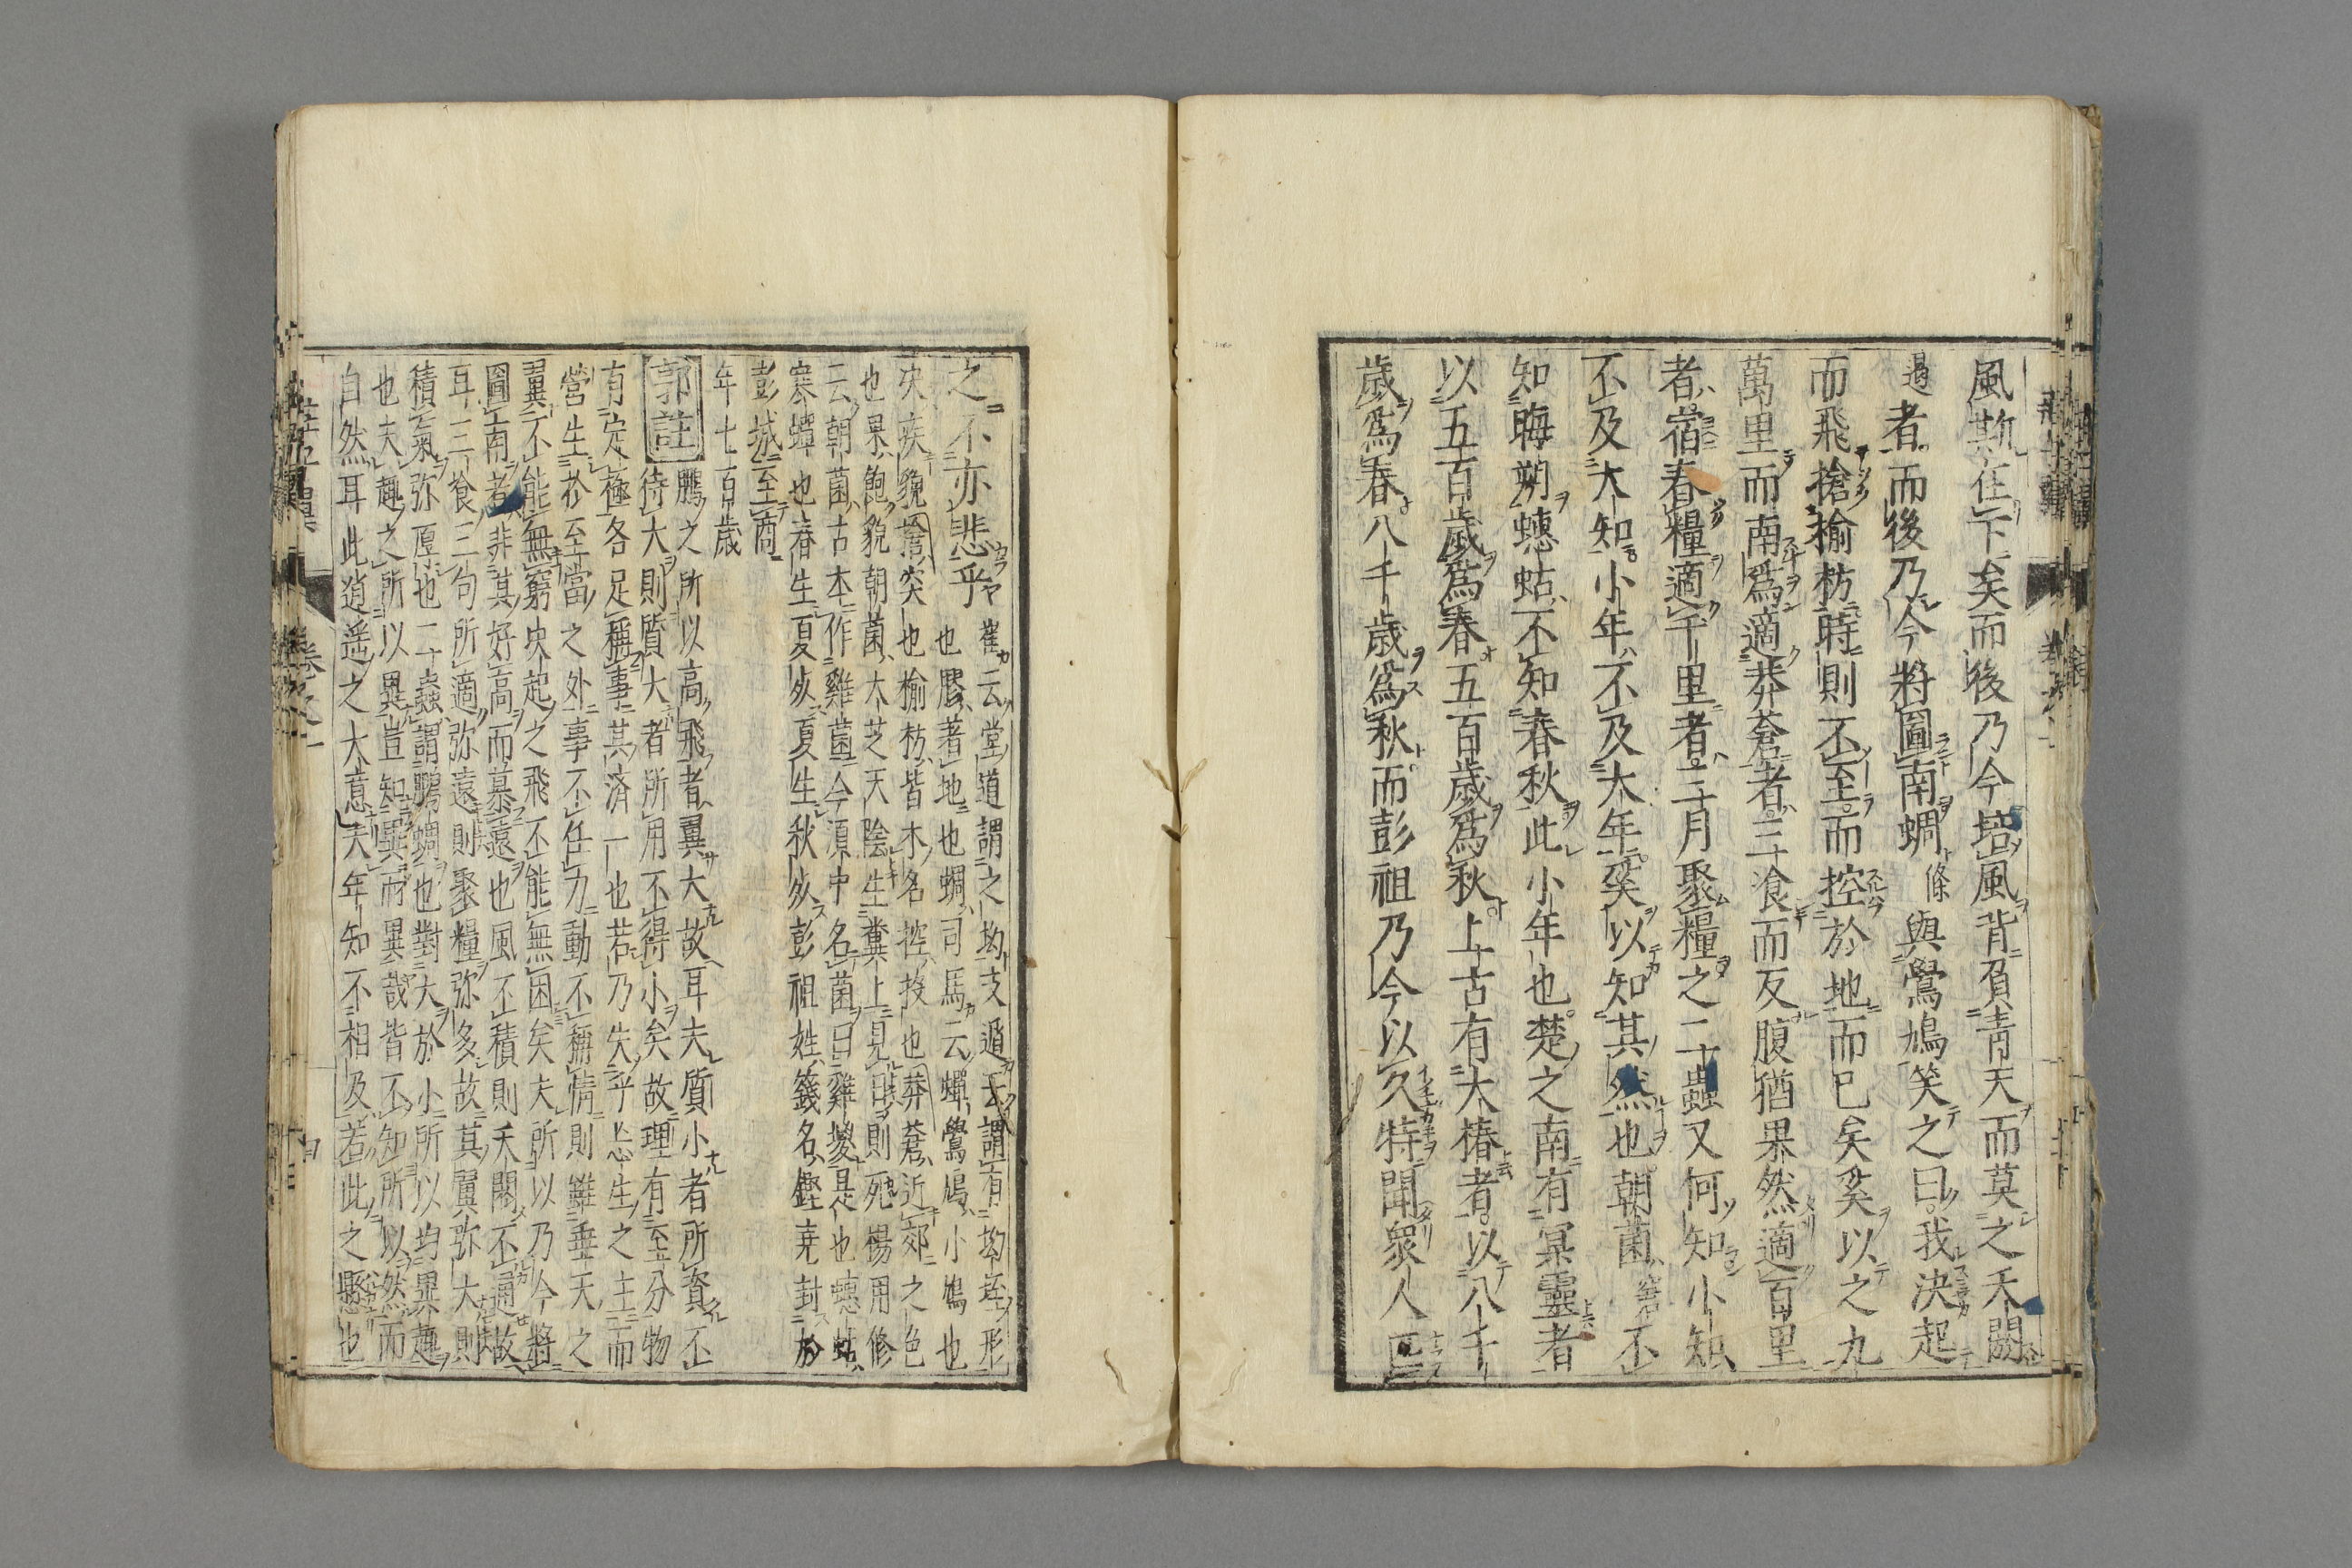 風斯在下矣而後乃今培風背負青天而莫之夭閼
遏者而後乃今將圖南蜩條與鷽鳩笑之曰我決起
而飛搶榆枋時則不至而控於地而已矣奚以之九
萬里而南爲適莽蒼者三飡而反腹猶果然適百里
者宿舂糧適千里者三月聚糧之二蟲又何知小知
不及大知小年不及大年奚以知其然也朝菌窘不
知晦朔蟪蛄不知春秋此小年也楚之南有冥靈者
以五百歲爲春五百歲爲秋上古有大椿者以八千
歲爲春八千歲爲秋而彭祖乃今以久特聞衆人匹
之不亦悲乎崔云堂道謂之坳支遁云謂有坳垤形
也膠著地也蜩司馬云蟬鷽鳩小鳩也
決疾貌搶突也榆枋皆木名控投也莽蒼近郊之色
也果飽貌朝菌大芝天陰生糞上見日則死楊用修
云朝菌古本作雞菌今滇中名菌曰雞㙡是也蟪蛄
寒蟬也春生夏死夏生秋死彭祖姓籛名鏗堯封於
彭城至商
年七百歲
郭註鵬之所以高飛者翼大故耳夫質小者所資不
待大則質大者所用不得小矣故理有至分物
有定極各足稱事其済一也若乃失乎忘生之主而
營生於至當之外事不任力動不稱情則雖垂天之
翼不能無窮决起之飛不能無困矣夫所以乃今將
圖南者非其好高而慕遠也風不積則夭閼不通故
耳三飡三句所適弥遠則聚糧弥多故其翼弥大則
積氣弥厚也二蟲謂鵬蜩也對大於小所以均異趣
也夫趣之所以異豈知異而異哉皆不知所以然而
自然耳此逍遥之大意夫年知不相及若此之懸也
卷之一